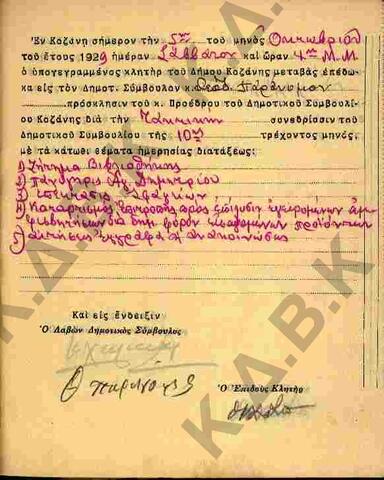 Ἐν Κοζάνῃ σήμερον τὴν 5ην τοῦ μηνὸς Ὀκτωβρίου
τοῦ ἔτους 1929 ἡμέραν Σάββατον καὶ ὥραν 4ην Μ.Μ
ὁ ὑπογεγραμμένος κλητὴρ τοῦ Δήμου Κοζάνης μεταβὰς ἐπέδω-
κα εἰς τὸν Δημοτ. Σύμβουλον κ.
πρόσκλησιν τοῦ κ. Προέδρου τοῦ Δημοτικοῦ Συμβουλί-
ου Κοζάνης διὰ τὴν Τακτικὴν συνεδρίασιν τοῦ
Δημοτικοῦ Συμβουλίου τῆς 10ης τρέχοντος μηνός,
μὲ τὰ κάτωθι θέματα ἡμερησίας διατάξεως:
1) Ζήτημα Βιβλιοθήκης
2) Πανήγυρις Ἁγ. Δημητρίου
3)
4) Καταρτισμὸς ἐπιτροπῆς πρὸς ἐπίλυσιν
διὰ τὸν φόρον προϊόντων
5) Αἰτήσεις ἔγγραφα & ἀνακοινώσεις
Καὶ εἰς ἔνδειξιν
Ὁ Λαβὼν Δημοτικὸς Σύμβουλος
Ὁ Ἐπιδοὺς Κλητὴρ
Κ.Δ.Β.Κ